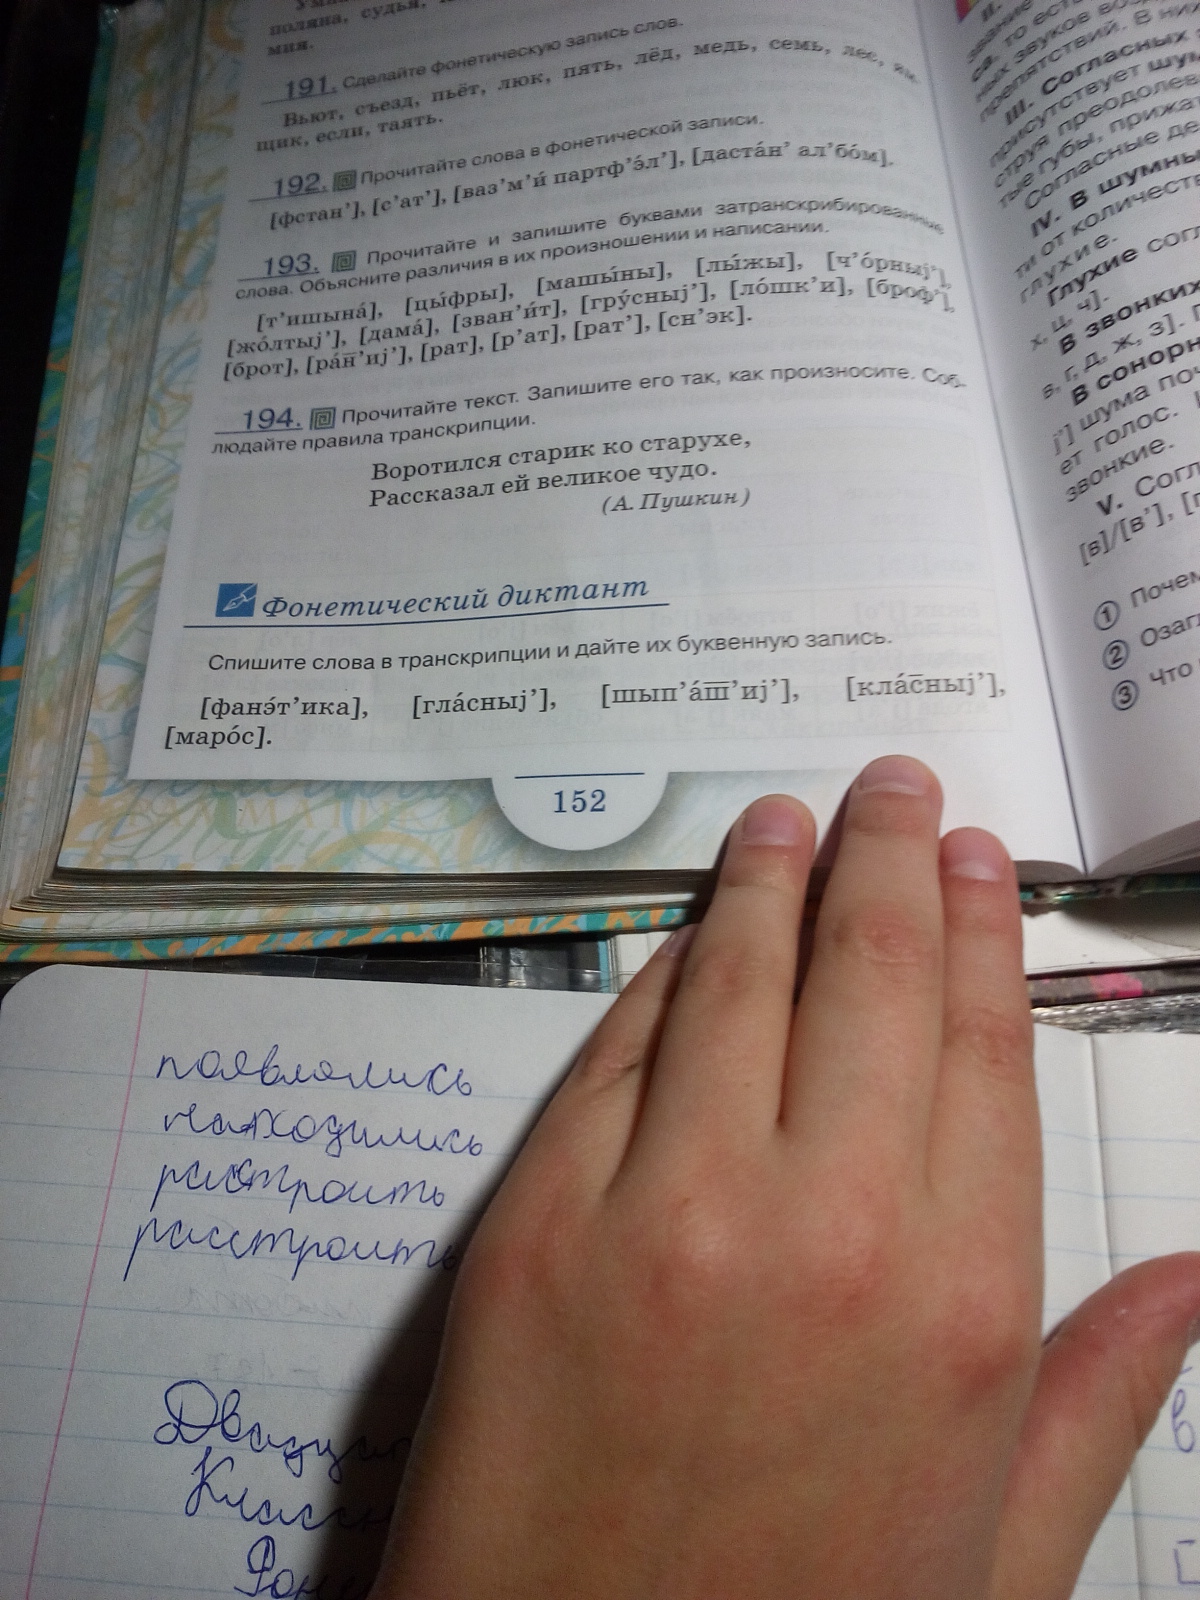 поляна, судья,
мия.
191. Сделайте фонетическую запись слов.
Вьют, съезд, пьёт, люк, пять, лёд, медь, семь, лес, ям-
щик, если, таять.
192. Прочитайте слова в фонетической записи.
[фстан’], [с’ат’], [ваз’м’и́ партф’э́л’], [даста́н’ ал’бо́м].
193. Прочитайте и запишите буквами затранскрибированные
слова. Объясните различия в их произношении и написании.
[т’ишына́], [цы́фры], [машы́ны], [лы́жы], [ч’о́рныј’],
[жо́лтыј’], [дама́], [зван’и́т], [гру́сныј’], [ло́шк’и], [броф’],
[брот], [ра́н̅’иј’], [рат], [р’ат], [рат’], [сн’эк].
194. Прочитайте текст. Запишите его так, как произносите. Соб-
людайте правила транскрипции.
Воротился старик ко старухе,
Рассказал ей великое чудо.
(А. Пушкин)
Фонетический диктант
Спишите слова в транскрипции и дайте их буквенную запись.
[фанэ́т’ика], [гла́сныј’], [шып’а́ш̅’иј’], [кла́с̅ныј’],
[маро́с].
152
звание
то есть
ных звуков
препятствий. В них
III. Согласных
присутствует шум
струя преодолев
тые губы, прижат
Согласные де
IV. В шумны
ти от количеств
глухие.
Глухие согл
х, ц, ч].
В звонких
в, г, д, ж, з].
В сонорн
j’] шума поч
ет голос.
звонкие.
V. Согл
[в]/[в’],
1 Почем
2 Озагл
3 Что
появлялись
находились
растроить
расстроить
Двадца
Классн
Фоне
в